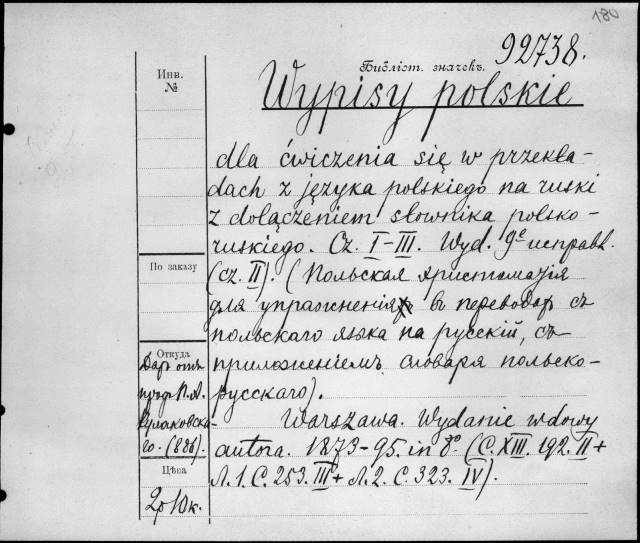 180
92738.
Библіот. значекъ.
Wypisy polskie
dla ćwiczenia się w przekła-
dach z języka polskiego na ruski
z dołączeniem słownika polsko-
ruskiego. Cz. I–III. Wyd. 9е исправл.
(cz. II). (Польская христоматія
для упражненія въ переводах съ
польскаго языка на русскій, съ
приложеніемъ словаря польско-
русскаго).
Warszawa. Wydanie wdowy
autora. 1873–95. in 8o. (С. XIII. 192. II +
Л. 1. С. 253. III + Л. 2. С. 323. IV).
Инв.
№
По заказу
Откуда
Даръ отъ
проф. П. А.
Кулаковска-
го. (886).
Цѣна
2р 10к.